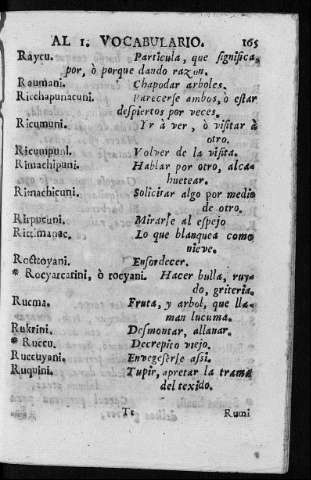 AL I. VOCABULARIO. 165
Raycu. Particula, que significa
por, ò porque dando razon.
Raumani. Chapodar arboles.
Ricchapunacuni. Parecerse ambos, ò estar
despiertos por veces.
Ricumuni. Yr à vèr, ò visitar à
otro.
Volver de la visita.
Rimachipuni. Hablar por otro, alca
huetear.
Rimachicuni. Solicitar algo por medio
de otro.
Mirarse al espejo
Lo que blanquea como
nieve.
Ensordecer.
* Rocyarcarini, ò rocyani. Hacer bulla, ruy
do, griteria.
Rucma. Fruta, y arbol, que lla
man lucuma.
Rukrini. Desmontar, allanar.
* Ruccu. Decrepito viejo.
Ruccuyani. Envegeserse assi.
Ruquini. Tupir, apretar la trama
del texido.
Tt Rumi